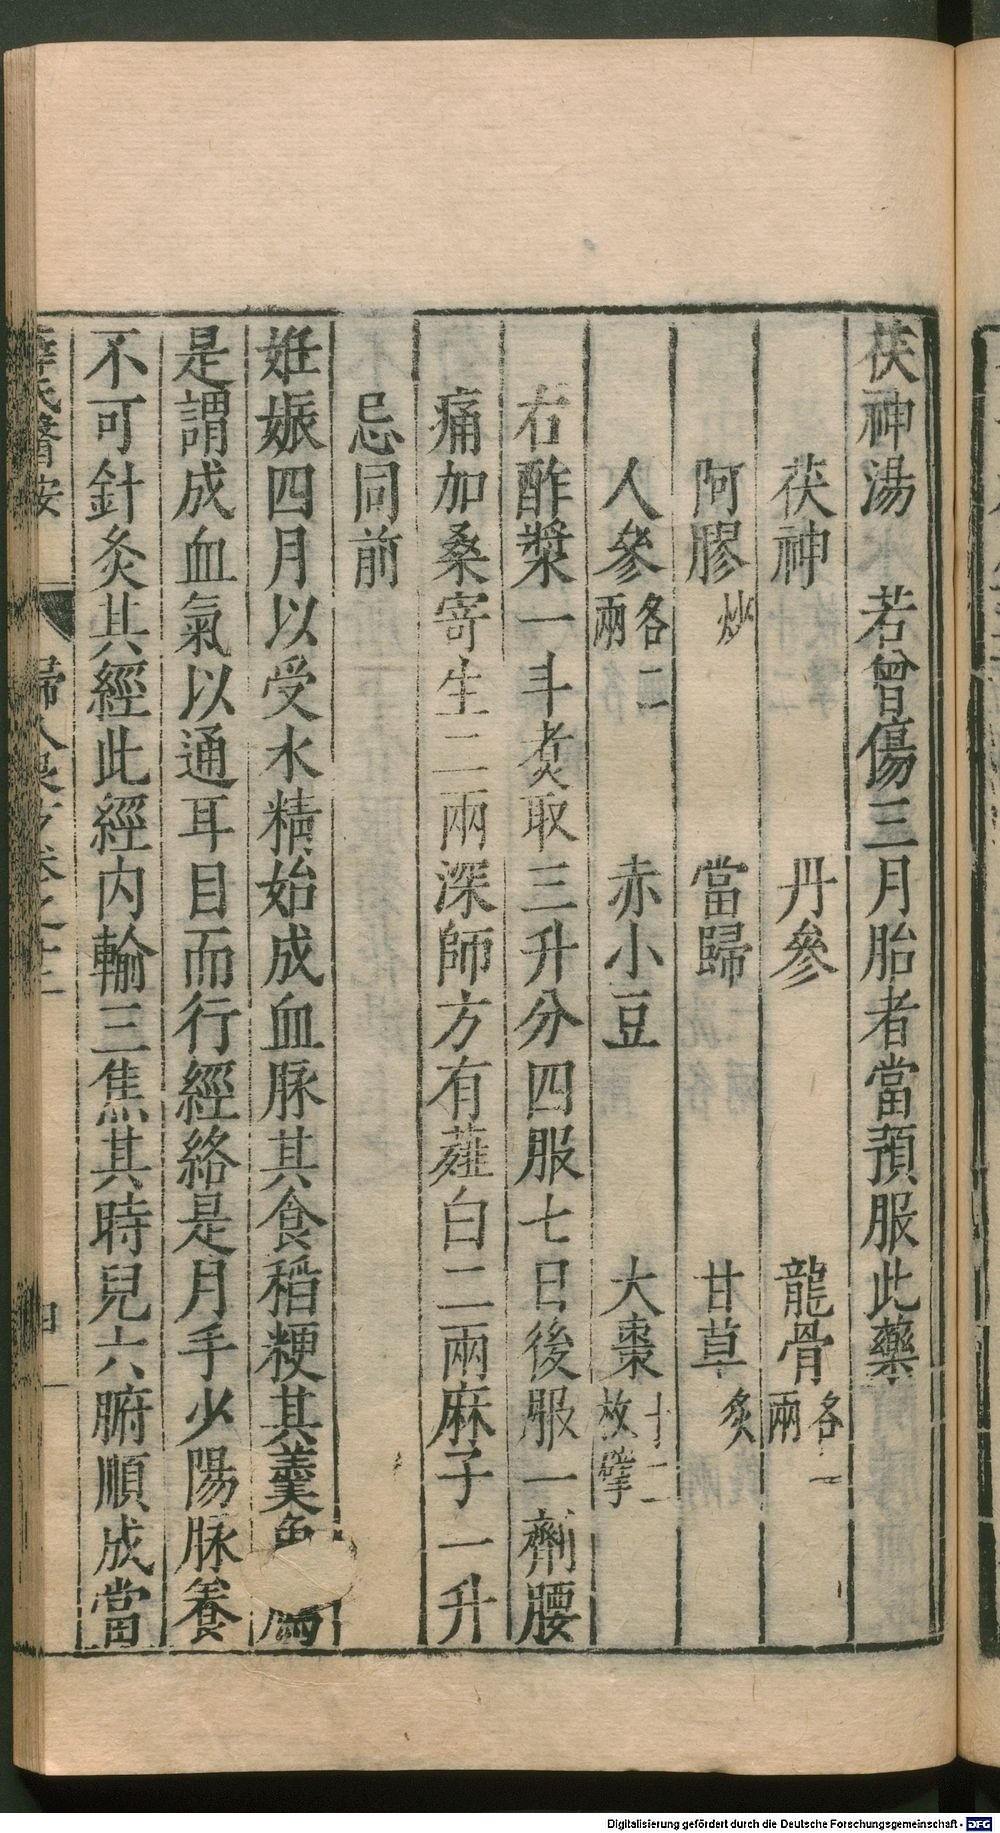 茯神湯　若曾傷三月胎者當預服此藥
茯神　丹參　龍骨各一兩
阿膠炒　當歸　甘草炙
人參各二兩　赤小豆　大棗十二枚擘
右酢漿一斗煑取三升分四服七日後服一劑腰
痛加桑寄生二兩深師方有薤白二兩麻子一升
忌同前
姙娠四月以受水精始成血脉其食稻粳其羹魚
是謂成血氣以通耳目而行經絡是月手少陽脉養
不可針灸其經此經内輸三焦其時兒六腑順成當
薛氏醫按　婦人良方卷之十二　四
Digitalisierung gefördert durch die Deutsche Forschungsgemeinschaft - DFG